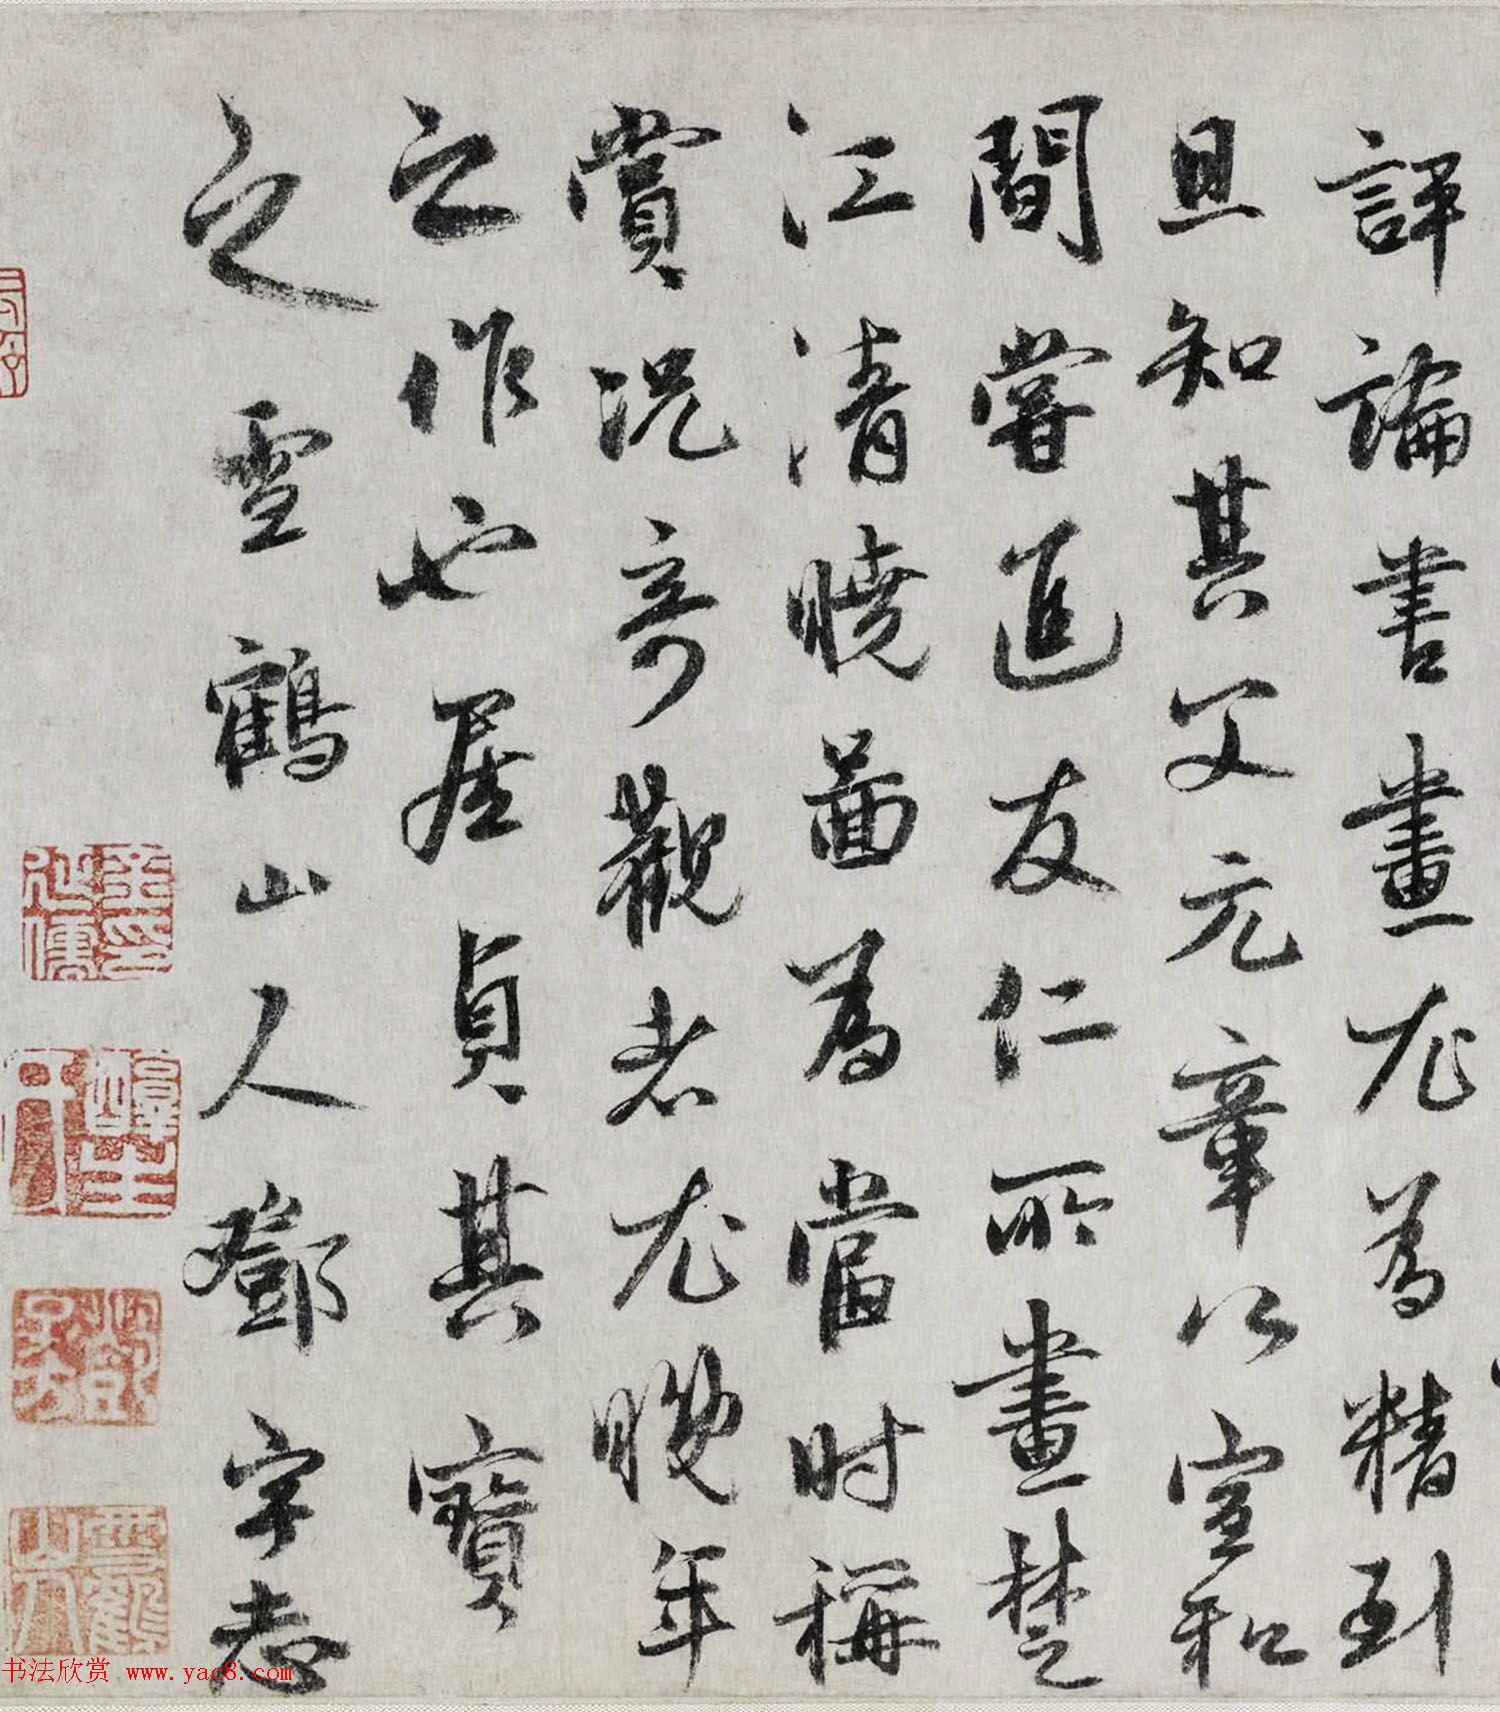 評論書畫尤為精到
且知其父元章公宣和
間嘗進友仁所畫楚
江清曉圖為當時稱
賞況奇觀者尤晚年
之作也居貞其寶
之雲鶴山人鄧宇志
书法欣赏 www.yac8.com